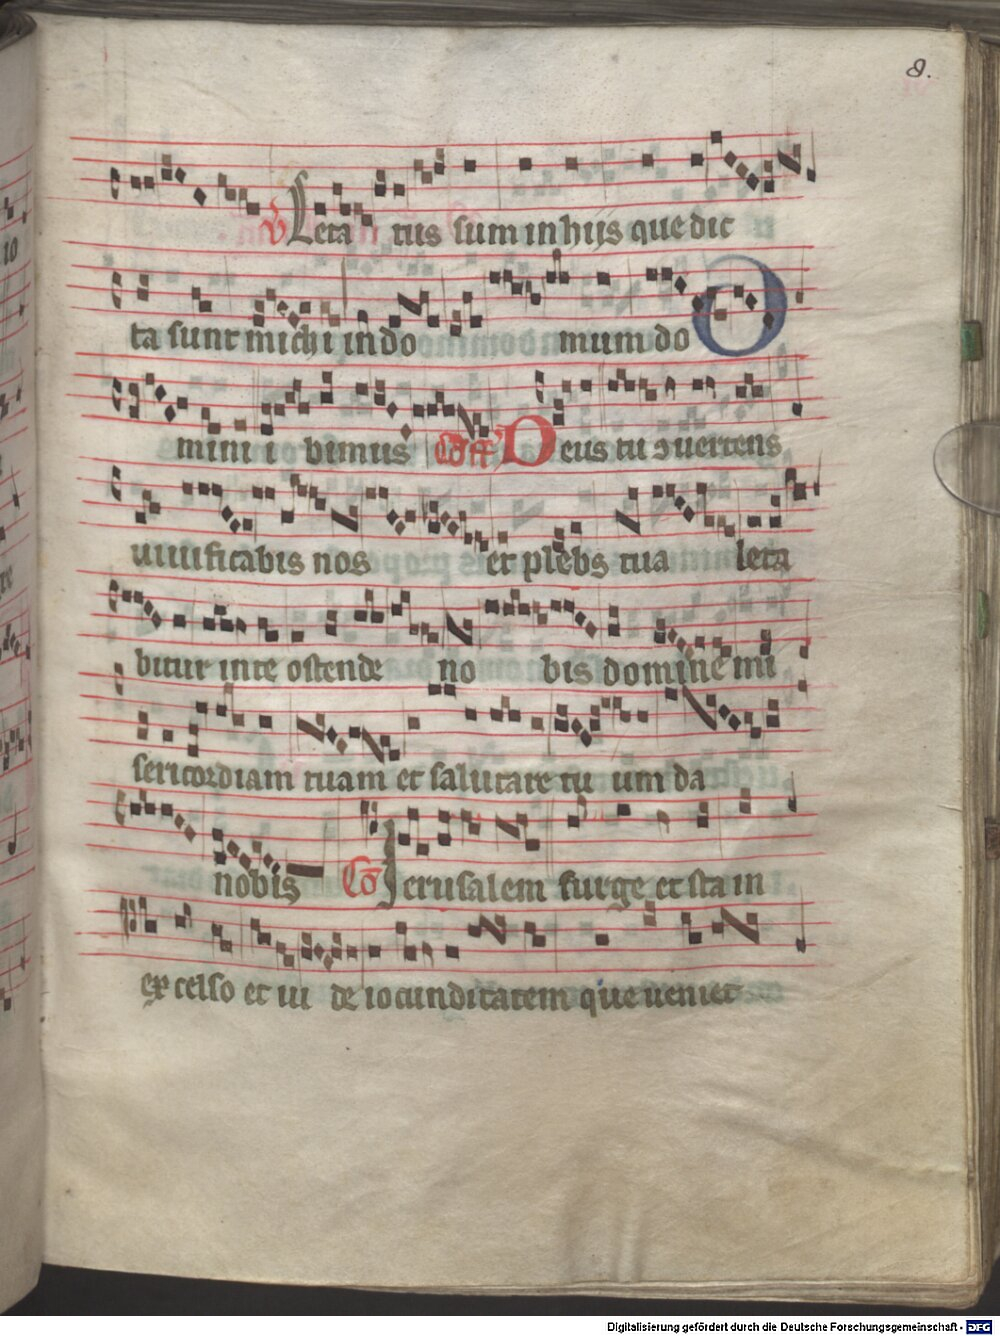 8.
V Leta tus sum in hijs que dic
ta sunt michi in do mum do
mini i bimus Off D eus tu ɔuertens
uiuificabis nos et plebs tua leta
bitur in te ostende no bis domine mi
sericordiam tuam et salutare tu um da
nobis Co Jerusalem surge et sta in
ex celso et ui de iocunditatem que ueniet
Digitalisierung gefördert durch die Deutsche Forschungsgemeinschaft - DFG